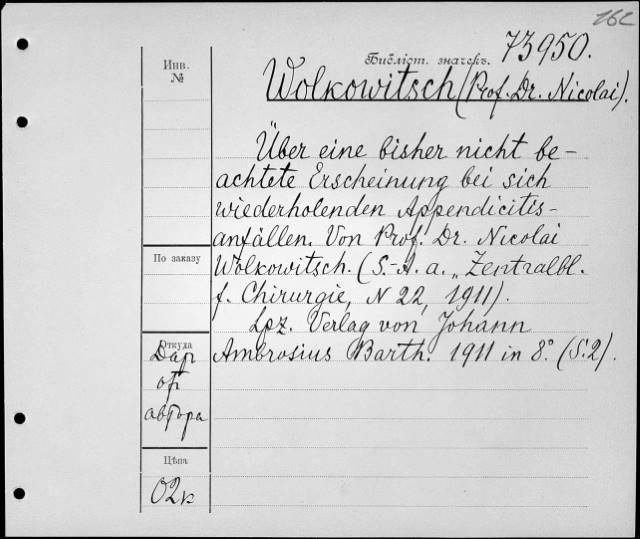 162
Библіот. значекъ. 73950.
Инв.
№
Wolkowitsch (Prof. Dr. Nicolai).
Über eine bisher nicht be-
achtete Erscheinung bei sich
wiederholenden Appendicitis-
anfällen. Von Prof. Dr. Nicolai
По заказу
Wolkowitsch. (S.-A. a. „Zentralbl.
f. Chirurgie, N 22, 1911).
Lpz. Verlag von Johann
Ambrosius Barth. 1911 in 8.° (S. 2).
Откуда
Дар
от
автора
Цѣна
02к